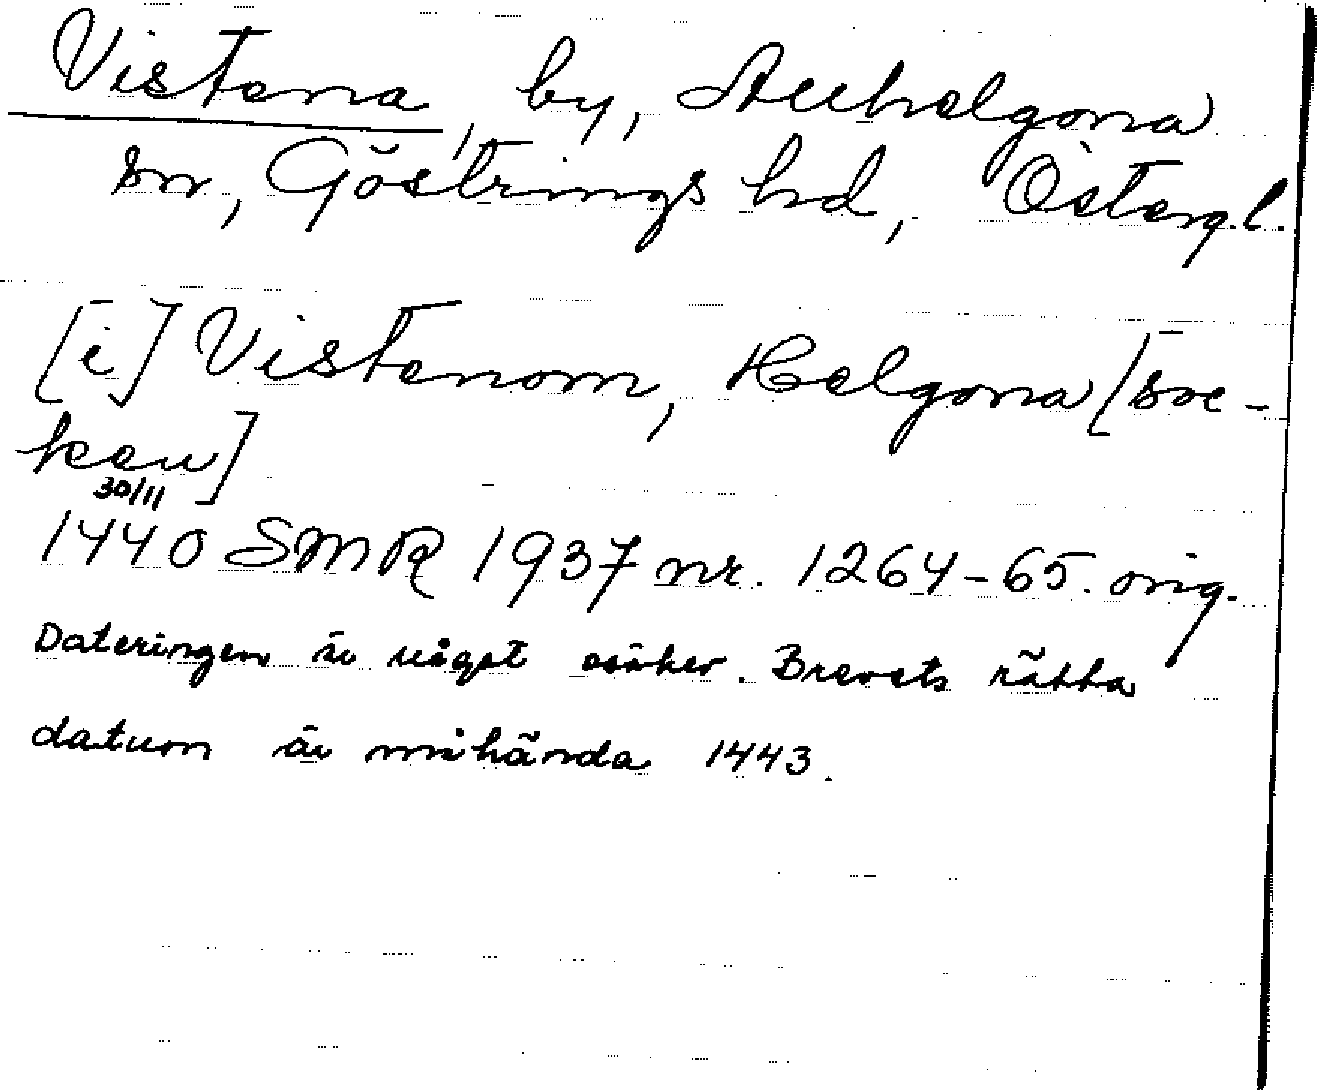 Vistena, by, Allhelgona
sn, Göstrings hd, Östergl.
[i] Vistenom, Helgona [soc-
ken]
30/11
1440 SMR 1937 nr. 1264-65. orig.
Dateringen är något osäker. Brevets rätta
datum är mihända 1443.